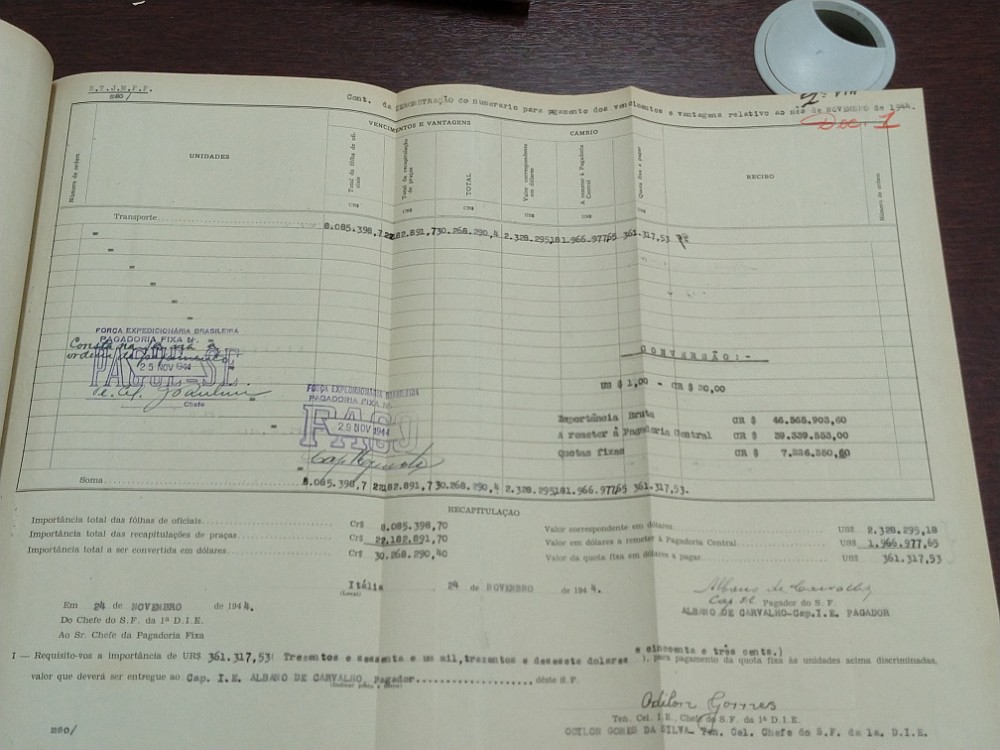 Cont. da DEMONSTRAÇÃO do numerario para pagamento dos vencimentos e vantagens relativo ao mês de NOVEMBRO de 1944.
2ª VIA
Doc. 1
280/
VENCIMENTOS E VANTAGENS
CAMBIO
Número de ordem
UNIDADES
Total da fôlha de oficiais
CR$
Total da recapitulação de praças
CR$
TOTAL
CR$
Valor correspondente em dólares
US$
A remeter à Pagadoria Central
US$
Quota fixa a pagar
US$
RECIBO
Número de ordem
Transporte
8.085.398,7 22.182.891,7 30.268.290,4 2.328.295,18 1.966.977,65 361.317,53
FORÇA EXPEDICIONÁRIA BRASILEIRA
PAGADORIA FIXA Nº
25 NOV 1944
Chefe
FORÇA EXPEDICIONÁRIA BRASILEIRA
PAGADORIA FIXA Nº
PAGO
28 NOV 1944
CONVERSÃO:-
US $ 1,00 - CR $ 20,00
Importância Bruta CR $ 46.565.903,60
A remeter à Pagadoria Central CR $ 39.339.553,00
Quotas fixas CR $ 7.226.350,60
Soma
8.085.398,7 22.182.891,7 30.268.290,4 2.328.295,18 1.966.977,65 361.317,53.
RECAPITULAÇÃO
Importância total das fôlhas de oficiais Cr$ 8.085.398,70
Importância total das recapitulações de praças Cr$ 22.182.891,70
Importância total a ser convertida em dólares Cr$ 30.268.290,40
Valor correspondente em dólares US$ 2.328.295,18
Valor em dólares a remeter à Pagadoria Central US$ 1.966.977,65
Valor da quota fixa em dólares a pagar US$ 361.317,53
Itália 24 de NOVEMBRO de 1944.
(Local)
Albano de Carvalho
Pagador do S.F.
ALBANO DE CARVALHO-Cap.I.E. PAGADOR
Em 24 de NOVEMBRO de 1944.
Do Chefe do S.F. da 1ª D.I.E.
Ao Sr. Chefe da Pagadoria Fixa
I — Requisito-vos a importância de UR$ 361.317,53( Trezentos e sessenta e um mil,trezentos e dezesete dolares e cincoenta e três cents.) ), para pagamento da quota fixa às unidades acima discriminadas,
valor que deverá ser entregue ao Cap. I.E. ALBANO DE CARVALHO, Pagador dêste S.F.
Odilon Gomes
Ten. Cel. I.E., Chefe do S.F. da 1ª D.I.E.
ODILON GOMES DA SILVA- Ten. Cel. Chefe do S.F. da 1a. D.I.E.
280/